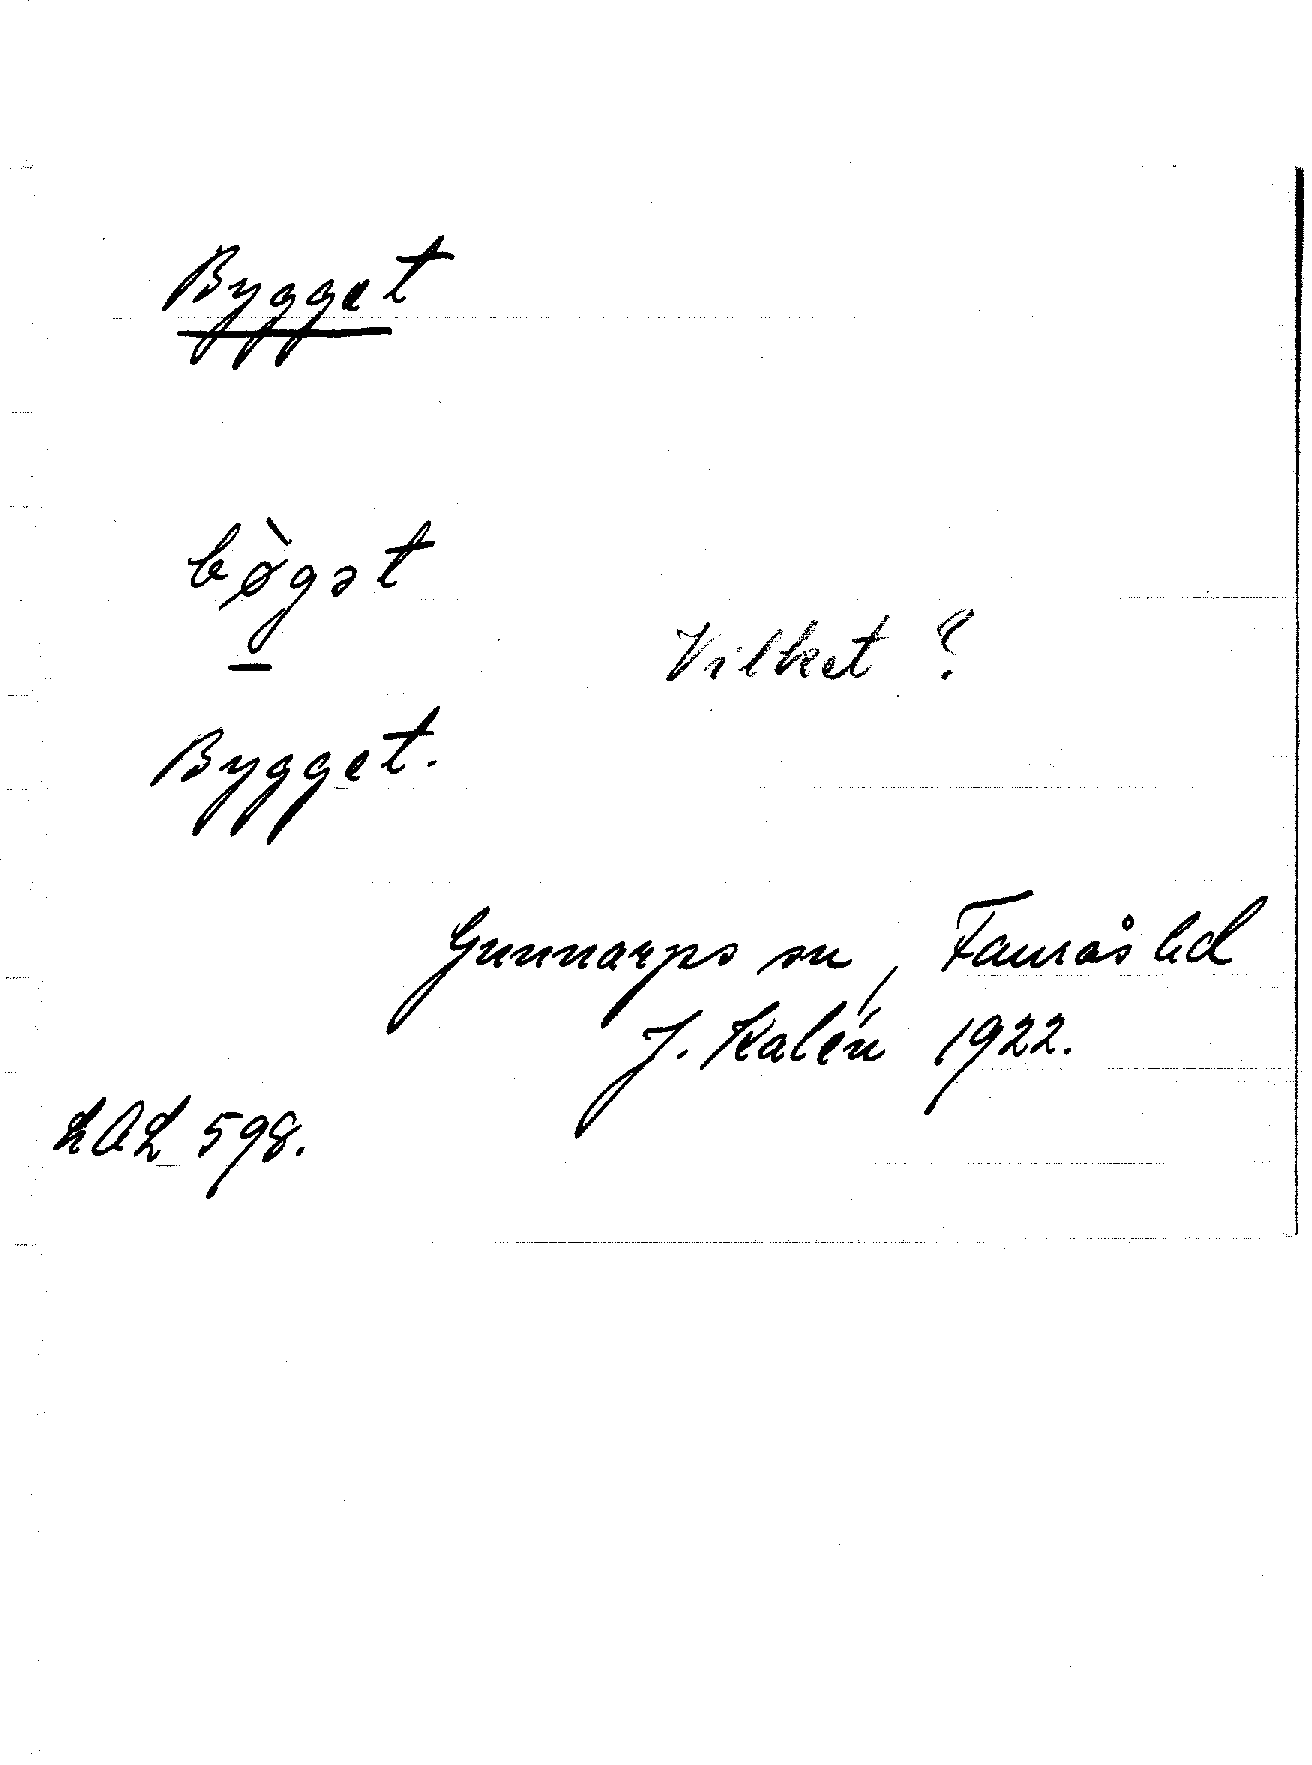 Bygget
bø̀gət
Vilket ?
Bygget.
Gunnarps sn, Faurås hd
J. Kalén 1922.
LAL 598.